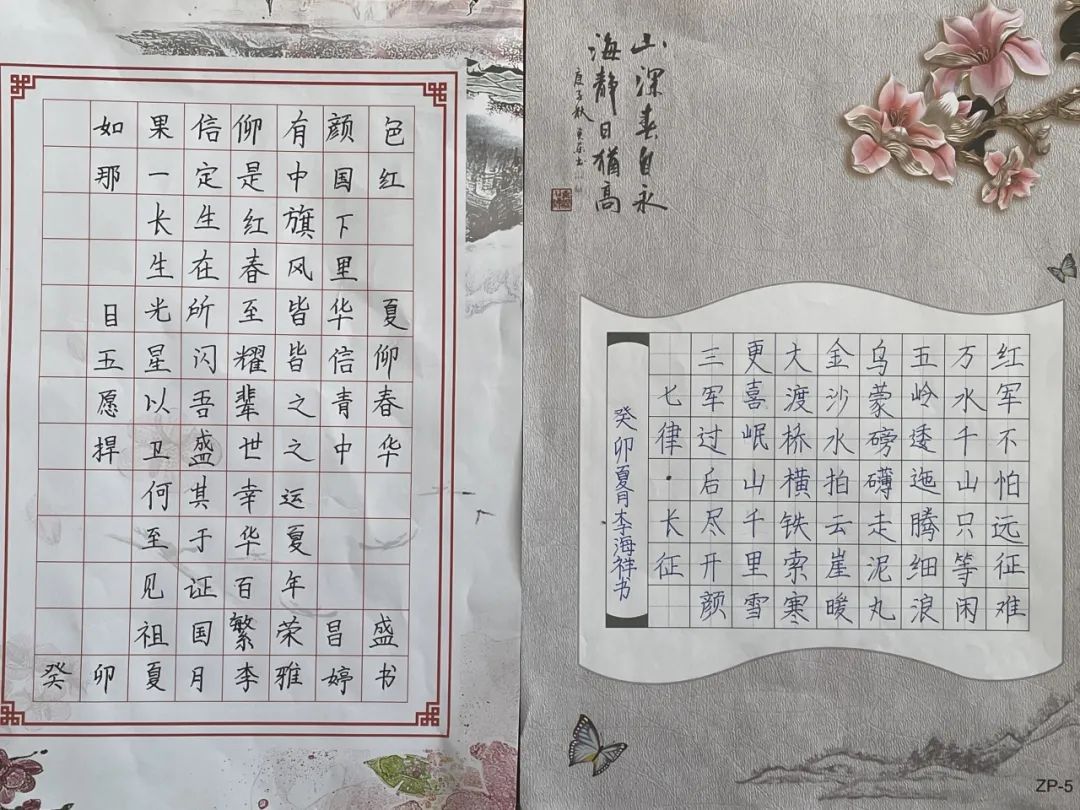 如果信仰有颜色
那一定是中国红
长生红旗下
生在春风里
目光所至皆华夏
五星闪耀皆信仰
愿以吾辈之青春
捍卫盛世之中华
何其幸运
至于华夏
见证百年
祖国繁荣昌盛
癸卯夏月李雅婷书
山深春自永
海静日猶高
庚子秋
红军不怕远征难
万水千山只等闲
五岭逶迤腾细浪
乌蒙磅礴走泥丸
金沙水拍云崖暖
大渡桥横铁索寒
更喜岷山千里雪
三军过后尽开颜
七律·长征
癸卯夏月李海祥书
ZP-5